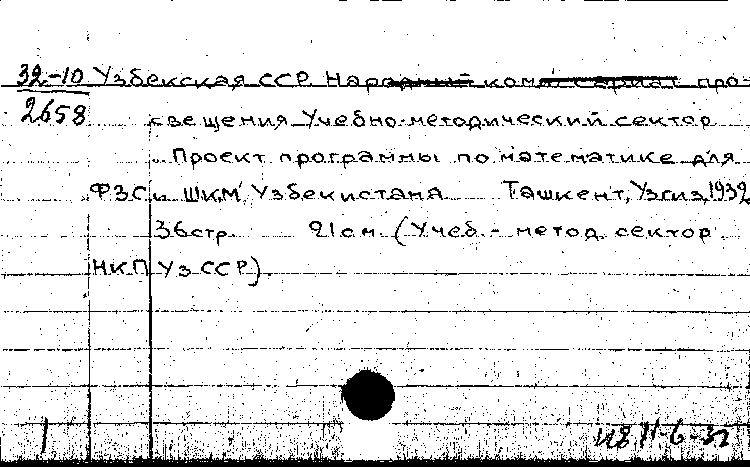 32-10 Узбекская ССР. Народный комиссариат про-
2658 свещения Учебно-методический сектор
Проект программы по математике для
ФЗС и ШКМ Узбекистана Ташкент, Узгиз, 1932
36 стр. 21 см. (Учеб. - метод. сектор
НКП Уз ССР).
11-6-32